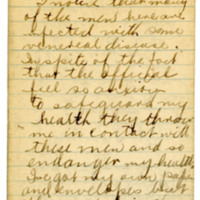 I notice that many
of the men here are
infected with some
venereal disease.
In spite of the fact
that the official
feel so anxious
to safeguard my
health they throw
me in contact with
these men and so
endanger my health
I've got my own paper
and envelopes but